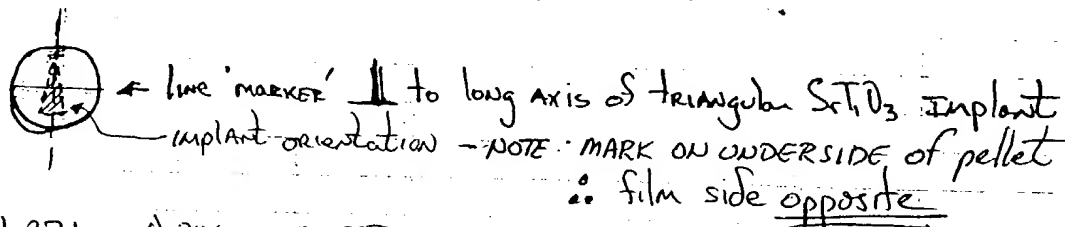 ← line 'MARKER' ⊥ to long AXIS of triangular SrTiO₃ Implant
implant orientation - NOTE: MARK ON UNDERSIDE of pellet
∴ film side opposite